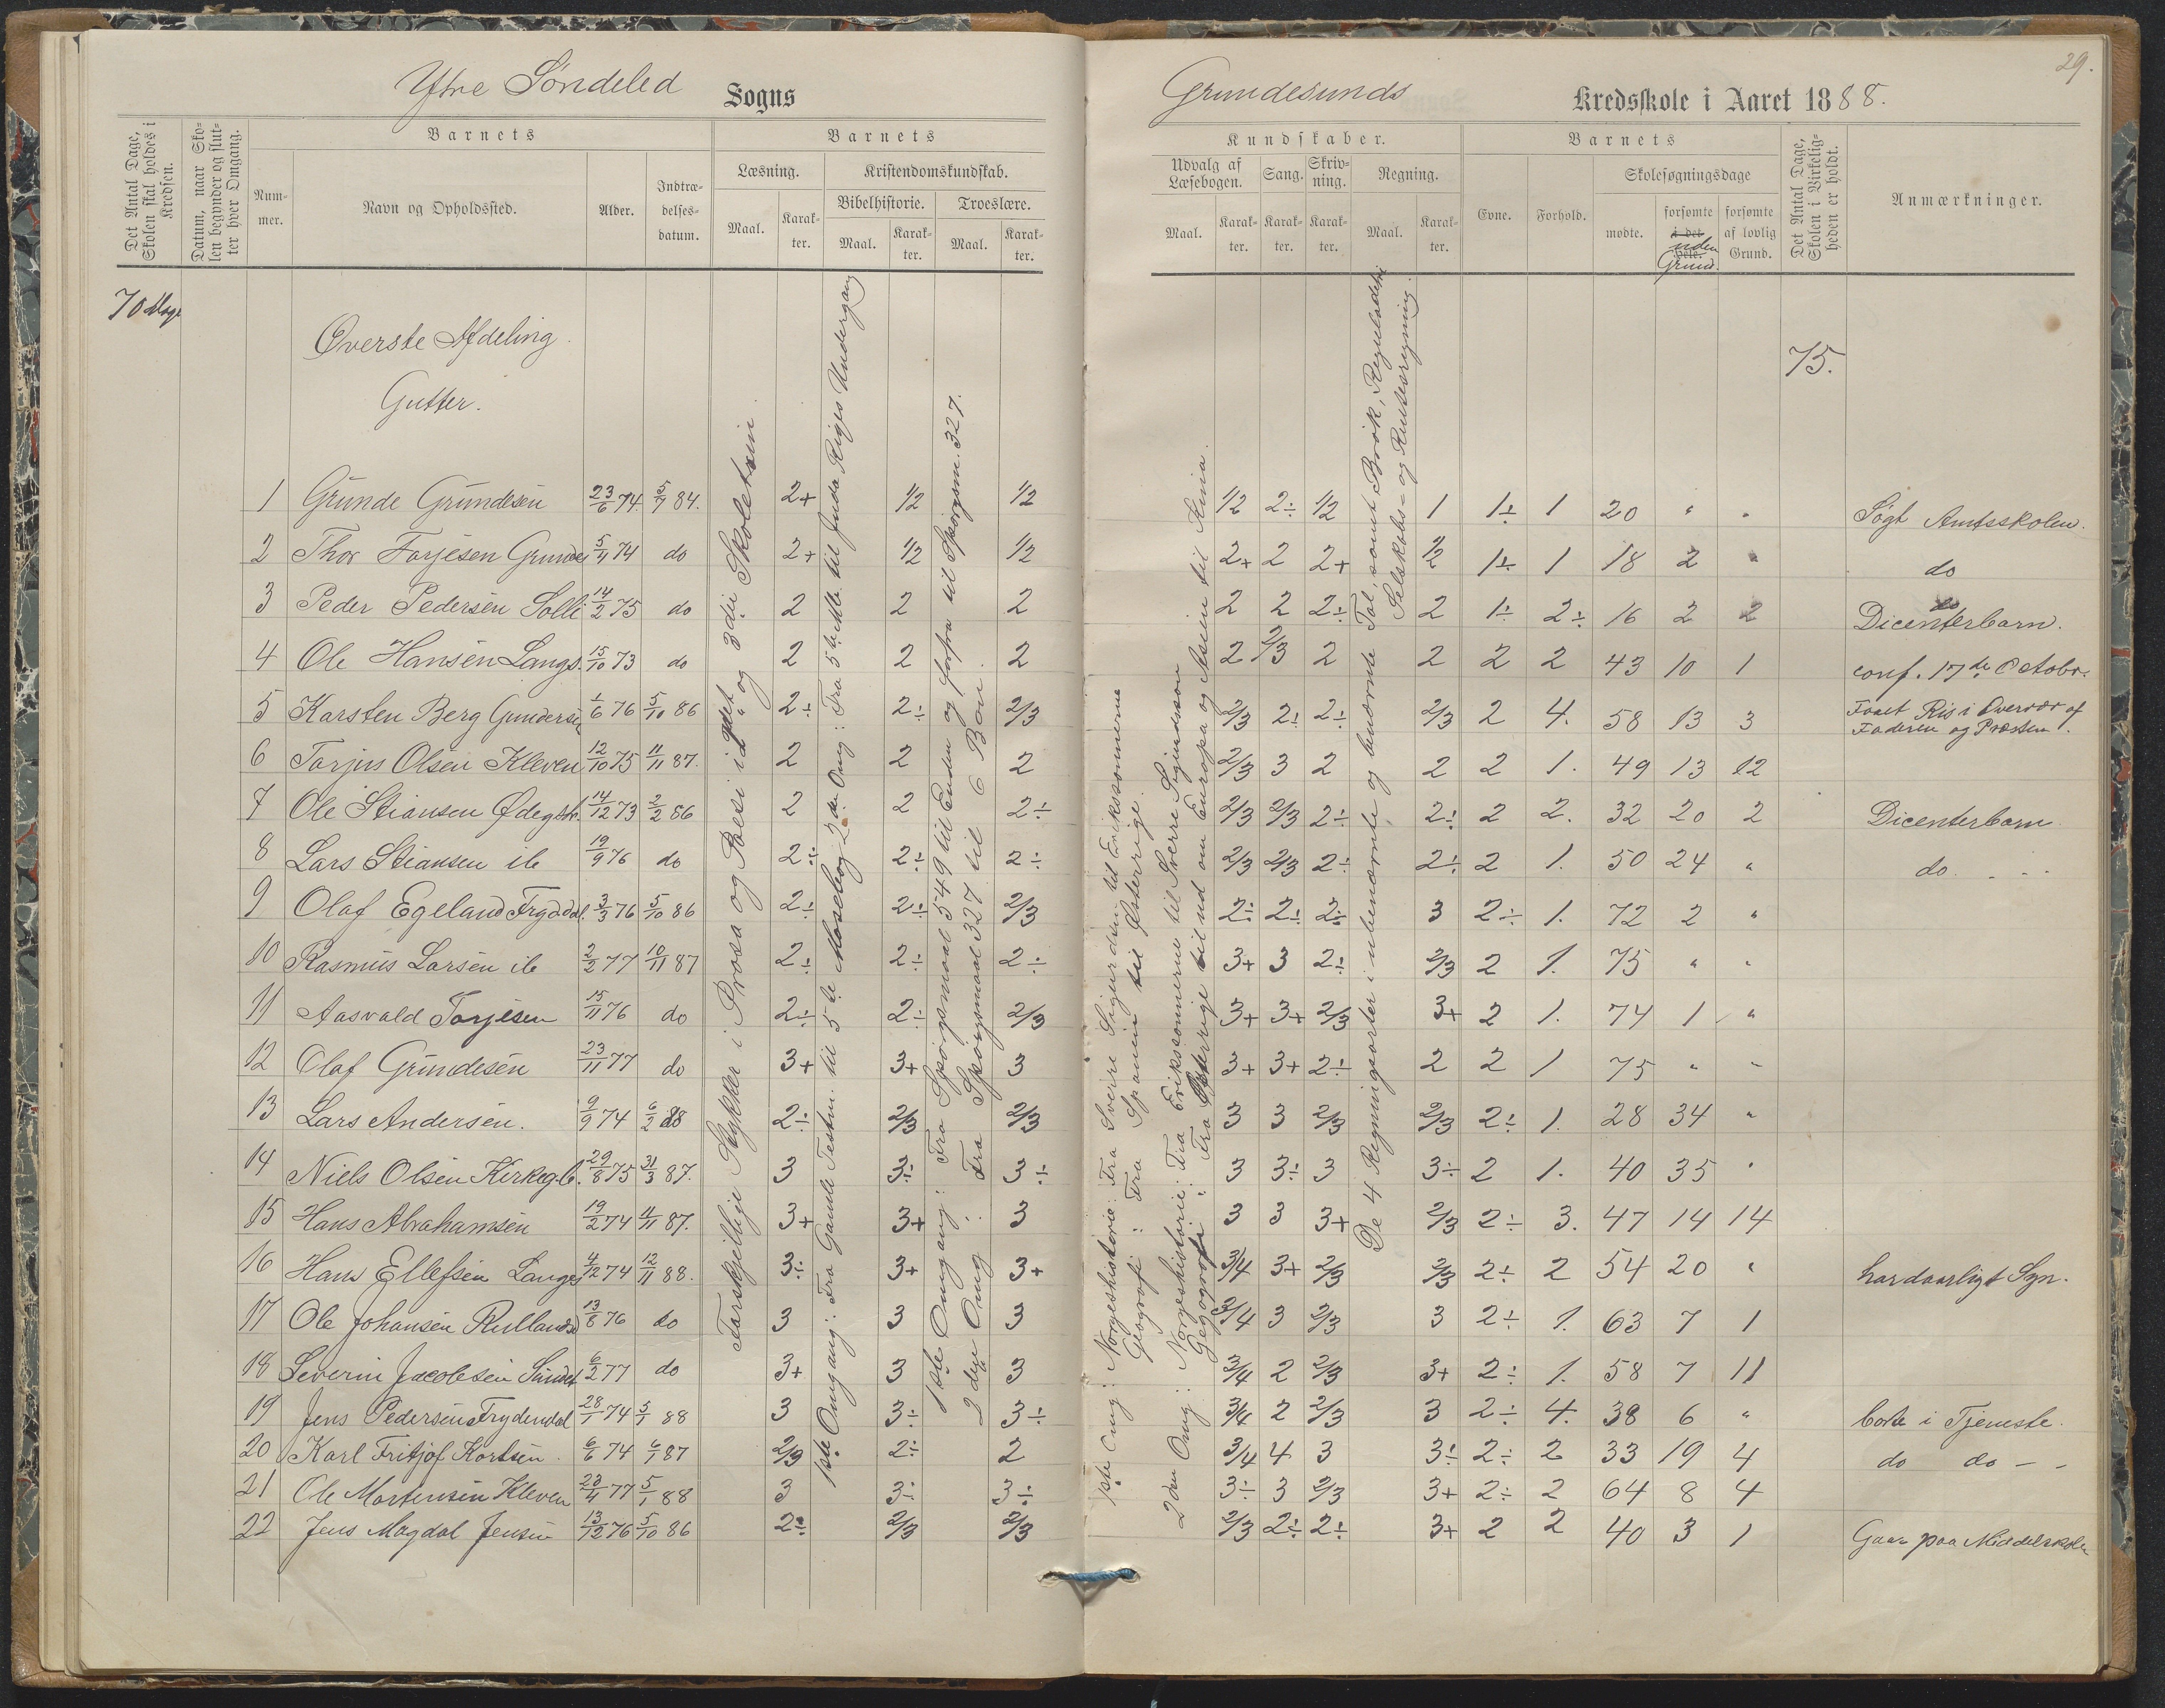 Ytre Söndeled Sogns
Det Antal Dage, Skolen skal holdes i Kredsen.
Datum, naar Skolen begynder og slutter hver Omgang.
Barnets
Nummer.
Navn og Opholdssted.
Alder.
Indtrædelsesdatum.
Barnets
Læsning.
Kristendomskundskab.
Bibelhistorie.
Troeslære.
Maal.
Karakter.
Maal.
Karakter.
Maal.
Karakter.
70 Dage
Øverste Afdeling.
Gutter.
1 Grunde Grundesen 23/6 74 5/7 84. 2+ 1/2 1/2
2 Thor Torjesen Grundes 5/11 74 do 2+ 1/2 1/2
3 Peder Pedersen Solli 14/2 75 do 2 2 2
4 Ole Hansen Langs. 15/10 73 do 2 2 2
5 Karsten Berg Gundersen 1/6 76 5/10 86 2÷ 2÷ 2/3
6 Torjus Olsen Kleven 12/10 75 11/11 87. 2 2 2
7 Ole Stiansen Ødegsk. 14/12 73 2/2 86 2 2 2÷
8 Lars Stiansen ib 19/9 76 do 2÷ 2÷ 2÷
9 Olaf Egeland Frydodl. 3/3 76 5/10 86 2÷ 2÷ 2/3
10 Rasmus Larsen ib 2/2 77 10/11 87 2÷ 2÷ 2÷
11 Aasvald Torjesen 15/11 76 do 2÷ 2÷ 2/3
12 Olaf Grundesen 23/11 77 do 3+ 3+ 3
13 Lars Andersen. 9/9 74 6/2 88 2÷ 2/3 2/3
14 Niels Olsen Kirkeg.b. 29/8 75 31/3 87. 3 3÷ 3÷
15 Hans Abrahamsen 19/2 74 11/11 87. 3+ 3+ 3
16 Hans Ellefsen Langes 4/12 74 12/11 88. 3÷ 3+ 3+
17 Ole Johansen Rullands 13/8 76 do 3 3 3
18 Severin Jacobsen Sundet 6/2 77 do 3+ 3 3
19 Jens Pedersen Frydendal 28/1 74 5/1 88 3 3÷ 3÷
20 Karl Fritjof Kortsen. 6/6 74 6/1 87 2/3 2÷ 2
21 Ole Mortensen Kleven 23/4 77 5/1 88 3 3÷ 3÷
22 Jens Magdal Jensen 13/12 76 5/10 86 2÷ 2/3 2/3
Forskjellige Stykker i Prosa og Poesi i 2det og 3die Skoletrin.
1ste Omgang: Fra Gamle Testm. til 5te Mosebog 2den Omg: Fra 5te Mb. til Juda Riges Undergang
1ste Omgang: Fra Spørgsmaal 549 til Enden og forfra til Spørgsm. 327.
2den Omg: Fra Spørgsmaal 327 til 6 Bøn.
29.
Grundesunds Kredsskole i Aaret 1888.
Kundskaber.
Udvalg af Læsebogen.
Sang.
Skrivning.
Regning.
Maal.
Karakter.
Karakter.
Karakter.
Maal.
Karakter.
Barnets
Evne.
Forhold.
Skolesøgningsdage
mødte.
forsømte i det hele. uden Grund.
forsømte af lovlig Grund.
Det Antal Dage, Skolen i Virkeligheden er holdt.
Anmærkninger.
75.
1/2 2÷ 1/2 1 1÷ 1 20 " " Søgt Amtsskolen.
2+ 2 2+ 1/2 1÷ 1 18 2 " do
2 2 2÷ 2 1÷ 2÷ 16 2 2 do Dicenterbarn.
2 2/3 2 2 2 2 43 10 1 conf. 17de Octobr.
2/3 2÷ 2÷ 2/3 2 4. 58 13 3 Faaet Ris i Overvær af Faderen og Præsten.
2/3 3 2 2 2 1. 49 13 12
2/3 2/3 2÷ 2÷ 2 2. 32 20 2 Dicenterbarn
2/3 2/3 2÷ 2÷ 2 1. 50 24 " do
2÷ 2÷ 2÷ 3 2÷ 1. 72 2 "
3+ 3 2÷ 2/3 2 1. 75 " "
3+ 3+ 2/3 3+ 2 1. 74 1 "
3+ 3+ 2÷ 2 2 1 75 " "
3 3 2/3 2/3 2÷ 1. 28 34 "
3 3÷ 3 3÷ 2 1. 40 35 "
3 3 3+ 2/3 2÷ 3. 47 14 14
3/4 3+ 2/3 2/3 2÷ 2 54 20 " har daarligt Syn.
3/4 3 2/3 3 2÷ 1. 63 7 1
3/4 2 2/3 3+ 2÷ 1. 58 7 11
3/4 2 2/3 3 2÷ 4. 38 6 " borte i Tjeneste.
3/4 4 3 3÷ 2÷ 2 33 19 4 do do
3÷ 3 2/3 3+ 2÷ 2 64 8 4
2/3 2÷ 2÷ 3+ 2 2 40 3 1 Gaar paa Middelskolen
1ste Omg: Norgeshistorie: Fra Sverre Sigurdsen til Erikssønnerne
Geografi: Fra Spanien til Østerrige.
2den Omg: Norgeshistorie: Fra Erikssønnerne til Sverre Sigurdssøn
Geografi: Fra Østerrige til ud om Europa og Asien til Kina.
De 4 Regningsarter i ubenævnte og benævnte Tal, samt Brøk, Reguladetri
Selskabs- og Rentesregning.